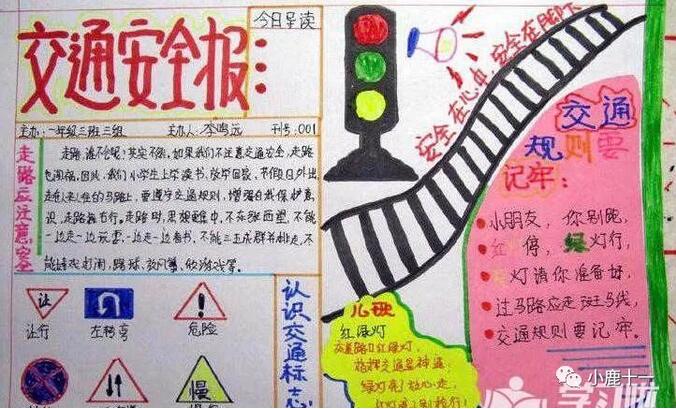 交通安全报
今日导读
主办:一年级三班三组 主办人:李鸣远 刊号:001
走路应注意安全
走路,谁不会呢?其实不然,如果我们不注意交通安全,走路
也闯祸。因此,我们小学生上学读书,放学回家,节假日外出,
走在人来人往的马路上,要遵守交通规则,增强自我保护意
识。走路靠右行。走路时,思想集中,不东张西望,不能
一边走一边玩耍,一边走一边看书,不能三五成群并排走,不
能嬉戏打闹,踢球、放风筝、做游戏等。
让
让行
左转弯
危险
慢
认识交通标志
安全在心中 安全在脚下
儿歌
红绿灯
交叉路口红绿灯,
指挥交通显神通;
绿灯亮了放心走,
交通
规则要
记牢:
小朋友,你别跑,
红灯停,绿灯行,
黄灯请你准备好,
过马路应走斑马线,
交通规则要记牢。
小鹿十一
学习啦